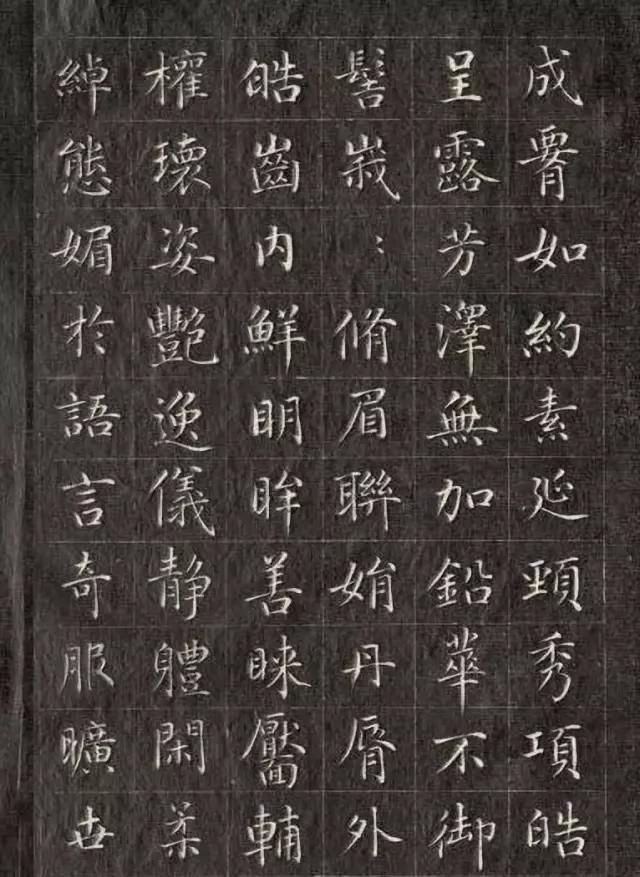 成腰如約素延頸秀項皓
呈露芳澤無加鉛華不御
髻峩〻脩眉聯娟丹脣外
皓齒內鮮明眸善睞靨輔
權瓌姿豔逸儀静軆閑柔
綽態媚於語言奇服曠世